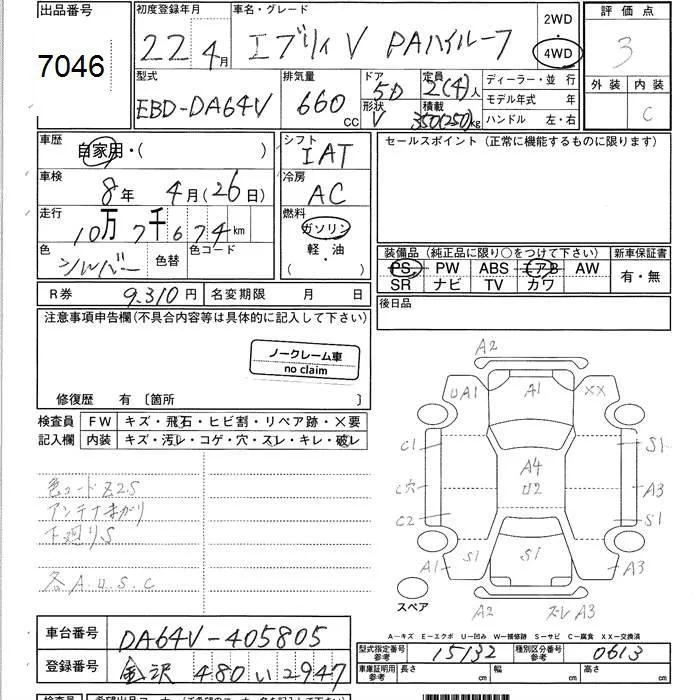 出品番号
7046
初度登録年月
22 4月
車名・グレード
エブリィV PAハイルーフ
2WD
4WD
評価点
3
外装 内装
C
型式
EBD-DA64V
排気量
660 CC
ドア 5D
形状 V
定員 2(4)人
積載 350(250)kg
ディーラー・並行
モデル年式 年
ハンドル 左・右
車歴
自家用・( )
車検
8年 4月(26日)
走行
10万7千674km
色
シルバー 色替 色コード
シフト
IAT
冷房
AC
燃料
ガソリン
軽・油
( ・ )
セールスポイント (正常に機能するものに限ります)
装備品 (純正品に限り○をつけて下さい) 新車保証書
PS PW ABS エアB AW 有・無
SR ナビ TV カワ
後日品
R券 9,310円 名変期限 月 日
注意事項申告欄(不具合内容等は具体的に記入して下さい)
ノークレーム車
no claim
修復歴 有 〔箇所 〕
検査員 FW キズ・飛石・ヒビ割・リペア跡・×要
記入欄 内装 キズ・汚レ・コゲ・穴・スレ・キレ・破レ
色コードZ2S
アンテナまがり
下廻りS
各A.U.S.C
A2
UA1 A1 XX
C1 S1
A4
U2
C穴 A3
C2 S1
A1 S1 S1 A3
スペア
A2 スレA3
A－キズ E－エクボ U－凹み W－補修跡 S－サビ C－腐食 XX－交換済
車台番号 DA64V-405805
登録番号 金沢 480 い 2947
型式指定番号 参考 15132 種別区分番号 参考 0613
車庫証明用 参考 長さ cm 幅 cm 高さ cm